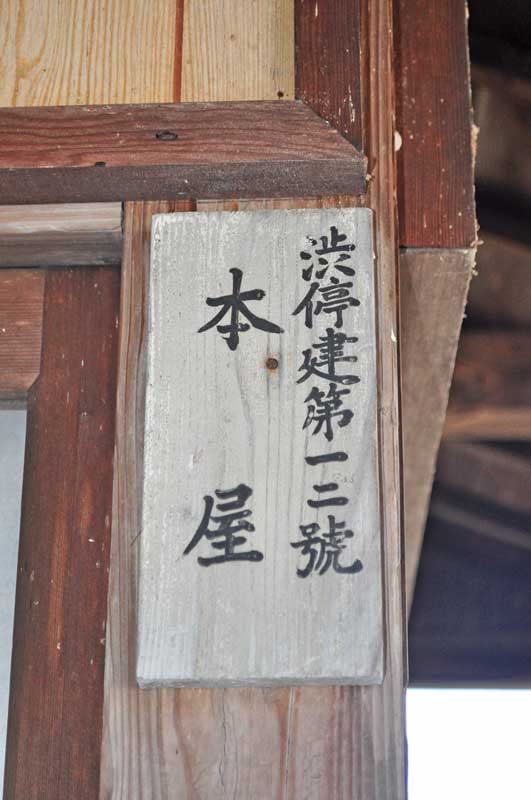 渋停建第一二號
本屋